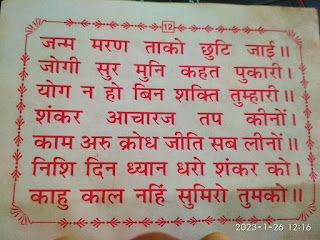 12
जन्म मरण ताको छुटि जाई॥
जोगी सुर मुनि कहत पुकारी।
योग न हो बिन शक्ति तुम्हारी॥
शंकर आचारज तप कीनों।
काम अरु क्रोध जीति सब लीनों॥
निशि दिन ध्यान धरो शंकर को।
काहु काल नहिं सुमिरो तुमको॥
2023-1-26 12:16